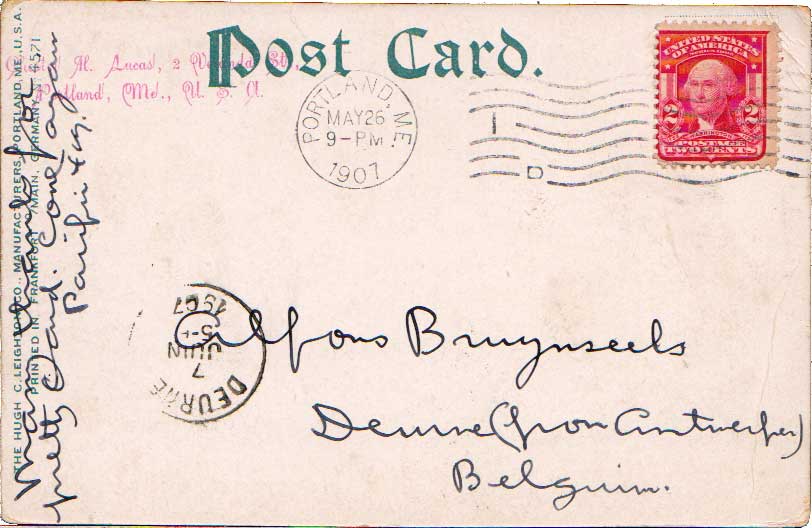 Post Card.
Al. Lucas, 2 St.,
Portland, Me., U. S. A.
PORTLAND, ME.
MAY 26
9-PM
1907
D
UNITED STATES
OF AMERICA
2 2
WASHINGTON
POSTAGE
TWO CENTS
DEURNE
7
JUIN
5-
1907
Alfons Bruynseels
Deurne (prov Antwerpen)
Belguim.
Many thanks for
pretty Card.
THE HUGH C. LEIGHTON CO., MANUFACTURERS, PORTLAND, ME., U.S.A.
PRINTED IN FRANKFORT / MAIN, GERMANY. N 4571